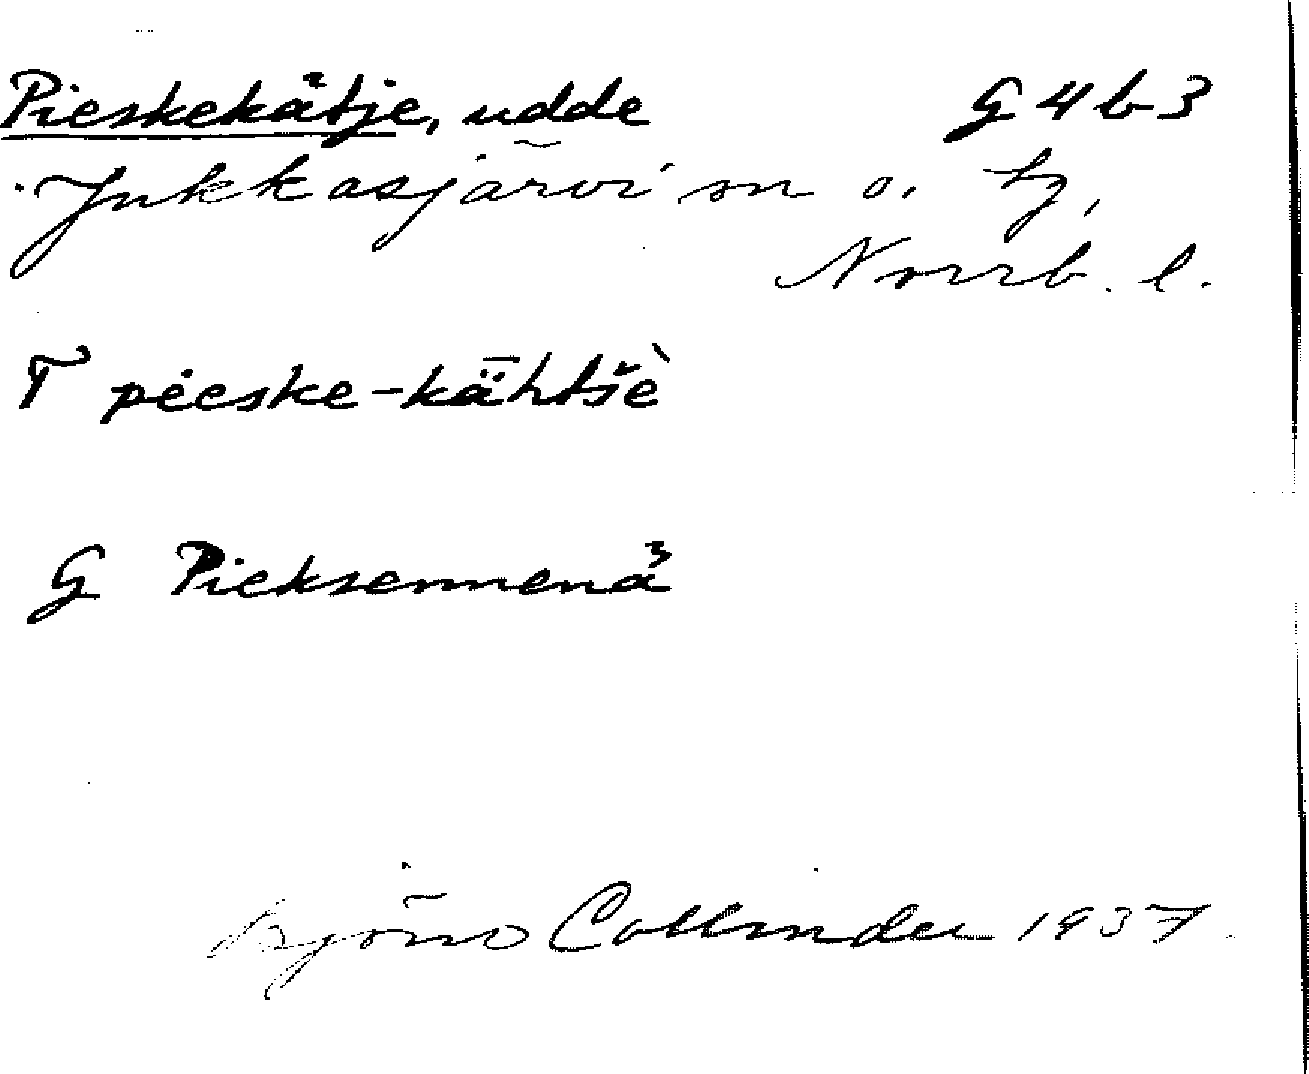 Pieskekätje, udde G4b3
Jukkasjärvi sn o. tg,
Norrb. l.
T pèeske-kǟhtšè
G Pieksennenä
Björn Collinder 1937